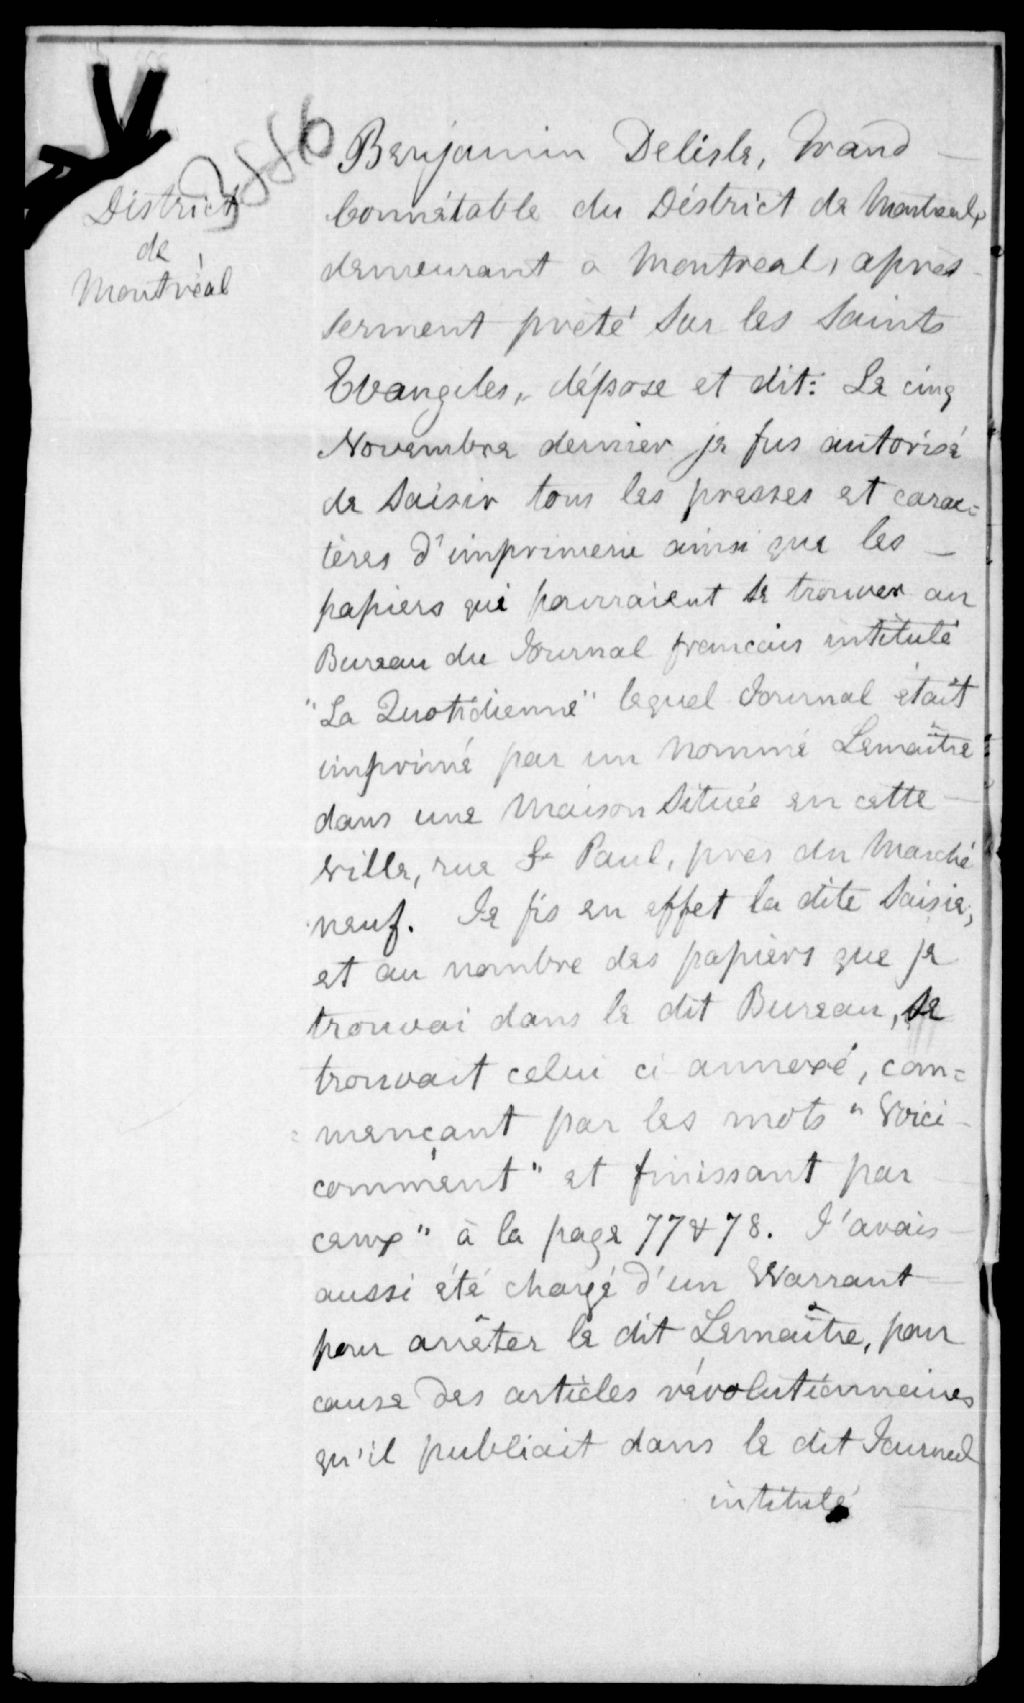 3886
District
de
Montréal
Benjamin Delisle, Grand
Connétable du District de Montreal,
demeurant a Montreal, après
serment prêté sur les Saints
Evangiles, dépose et dit: Le cinq
Novembre dernier je fus autorisé
de saisir tous les presses et carac=
tères d'imprimerie ainsi que les
papiers qui pourraient se trouver au
Bureau du Journal francais intitulé
"La Quotidienne" lequel Journal était
imprimé par un nommé Lemaître
dans une Maison située en cette
ville, rue St Paul, près du Marché
neuf. Je fis en effet la dite saisie,
et au nombre des papiers que je
trouvai dans le dit Bureau, se
trouvait celui ci annexé, com=
=mençant par les mots "Voici
comment" et finissant par
ceux" à la page 77 & 78. J'avais
aussi été chargé d'un Warrant
pour arrêter le dit Lemaître, pour
cause des articles révolutionnaires
qu'il publiait dans le dit Journal
intitulé